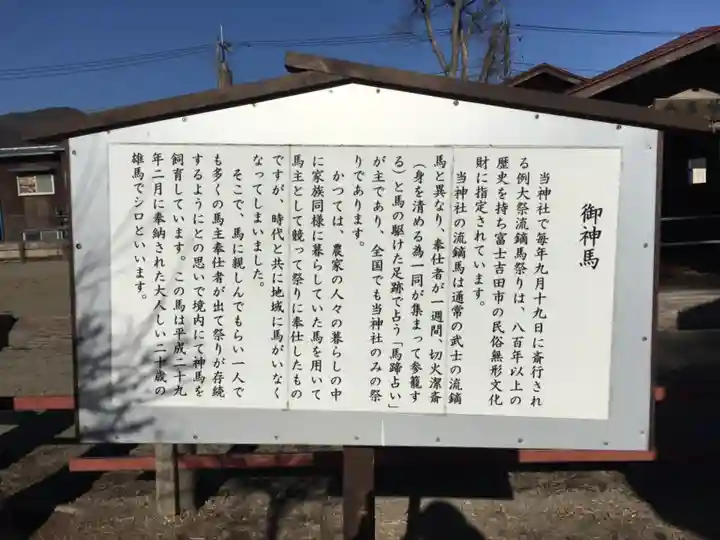 御神馬
当神社で毎年九月十九日に斎行され
る例大祭流鏑馬祭りは、八百年以上の
歴史を持ち富士吉田市の民俗無形文化
財に指定されています。
当神社の流鏑馬は通常の武士の流鏑
馬と異なり、奉仕者が一週間、切火潔斎
（身を清める為一同が集まって参籠す
る）と馬の駆けた足跡で占う「馬蹄占い」
が主であり、全国でも当神社のみの祭
りであります。
かつては、農家の人々の暮らしの中
に家族同様に暮らしていた馬を用いて
馬主として競って祭りに奉仕したもの
ですが、時代と共に地域に馬がいなく
なってしまいました。
そこで、馬に親しんでもらい一人で
も多くの馬主奉仕者が出て祭りが存続
するようにとの思いで境内にて神馬を
飼育しています。この馬は平成二十九
年二月に奉納された大人しい二十歳の
雄馬でシロといいます。